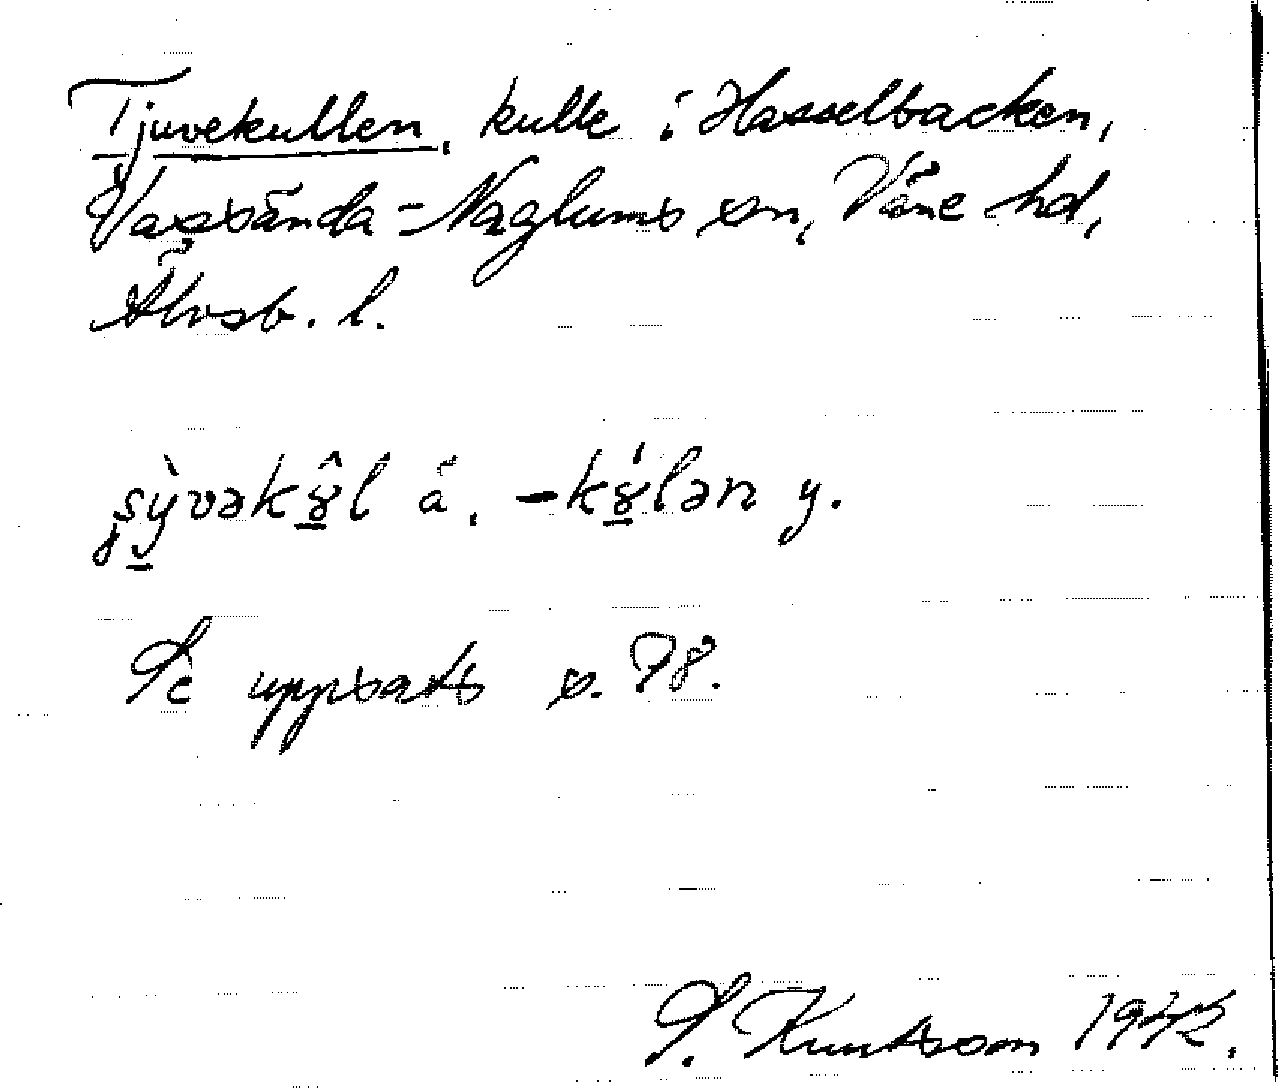 Tjuvekullen, kulle i Hasselbacken,
Vassända-Naglums sn, Väne hd,
Älvsb. l.
ʂỳvəkɤ̂l ä. -kɤ́lən y.
Se uppsats s. 78.
S. Knutsson 1942.